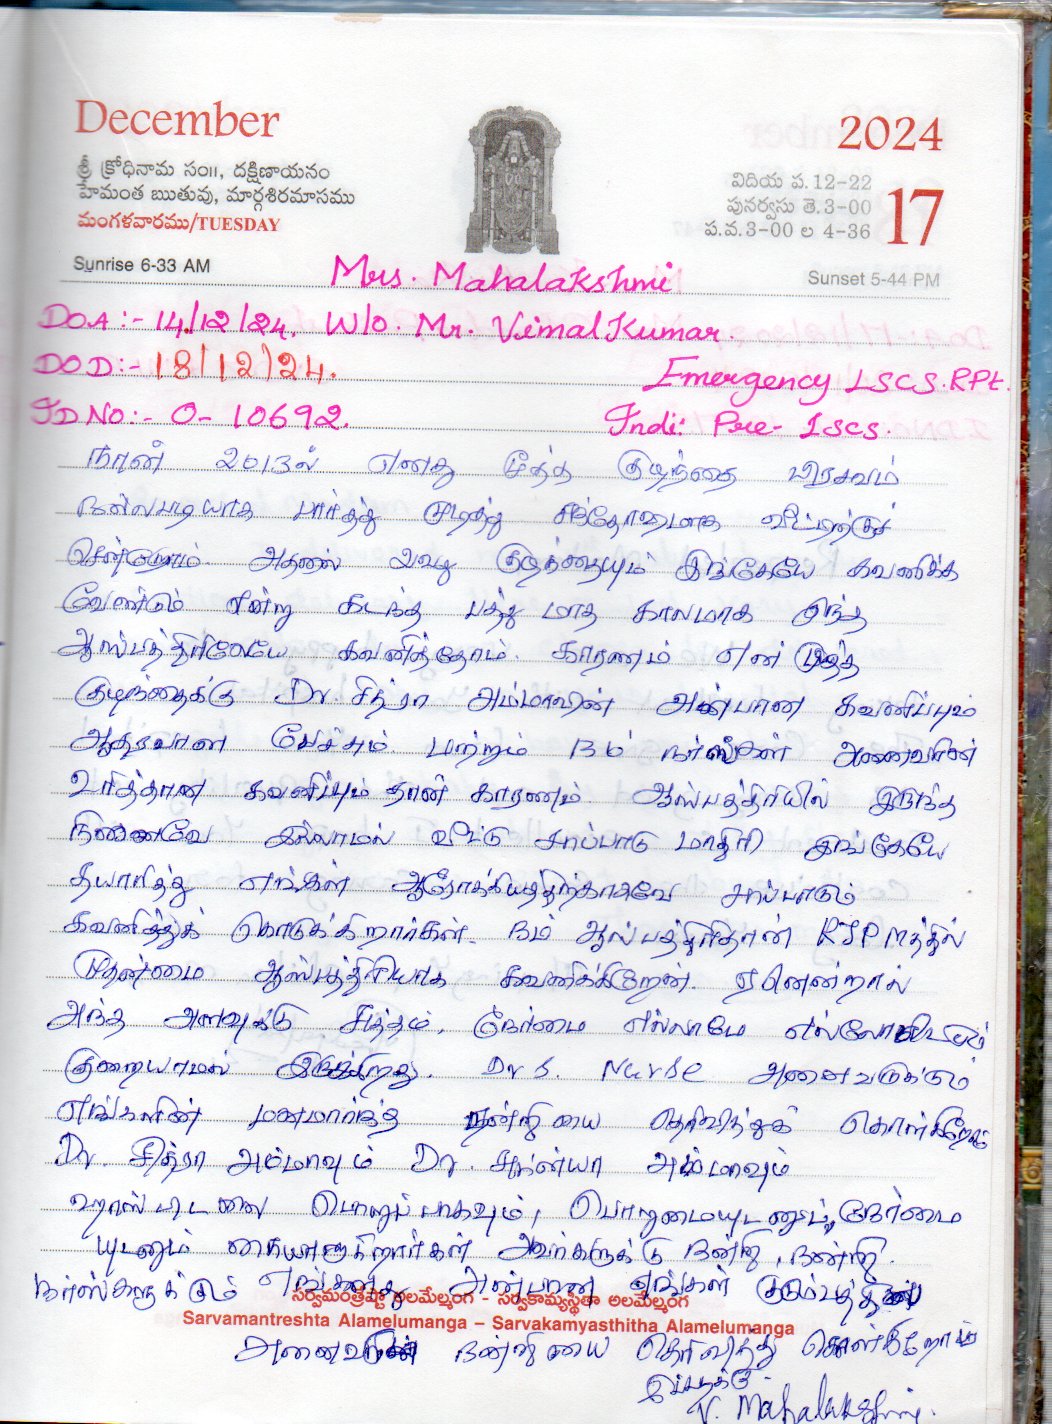 December
2024
శ్రీ క్రోధినామ సం॥, దక్షిణాయనం
హేమంత ఋతువు, మార్గశిరమాసము
మంగళవారము/TUESDAY
విదియ ప.12-22
పునర్వసు తె.3-00
ప.వ.3-00 ల 4-36
17
Sunrise 6-33 AM
Sunset 5-44 PM
Mrs. Mahalakshmi
DOA:- 14/12/24. W/o. Mr. Vimal Kumar.
DOD:- 18/12/24.
Emergency LSCS. RPt.
ID NO:- O- 10692.
Indi: Pre- Lscs.
நான் 2013ல் எனது மூத்த குழந்தை பிரசவம்
நல்லபடியாக பார்த்து முடித்து சந்தோஷமாக வீட்டிற்குச்
சென்றோம். அதனால் 2வது குழந்தையும் இங்கேயே கவனிக்க
வேண்டும் என்று கடந்த பத்து மாத காலமாக இந்த
ஆஸ்பத்திரிலேயே கவனித்தோம். காரணம் என் மூத்த
குழந்தைக்கு Dr சித்ரா அம்மாவின் அன்பான கவனிப்பும்
ஆதரவான பேச்சும். மற்றும் நம் நர்ஸ்கள் அனைவரின்
உரித்தான கவனிப்பும் தான் காரணம். ஆஸ்பத்திரியில் இருந்த
நினைவே இல்லாமல் வீட்டு சாப்பாடு மாதிரி இங்கேயே
தயாரித்து எங்கள் ஆரோக்கியத்திற்காகவே சாப்பாடும்
கவனித்துக் கொடுக்கிறார்கள். நம் ஆஸ்பத்திரிதான் RSP மத்தில்
முதன்மை ஆஸ்பத்திரியாக கவனிக்கிறேன். ஏனென்றால்
அந்த அளவுக்கு சுத்தம், நேர்மை எல்லாமே எல்லோரிடமும்
குறையாமல் இருக்கிறது. Dr s. Nurse அனைவருக்கும்
எங்களின் மனமார்ந்த நன்றியை தெரிவித்துக் கொள்கிறேன்
Dr. சித்ரா அம்மாவும் Dr. அம்மாவும்
ஹாஸ்பிடலை பொறுப்பாகவும், பொறுமையுடனும், நேர்மை
யுடனும் கையாளுகிறார்கள் அவர்களுக்கு நன்றி, நன்றி.
நர்ஸ்களுக்கும் எங்களது அன்பான எங்கள் குடும்பத்தின்
సర్వమంత్రేష్టా అలమేల్మంగ - సర్వకామ్యస్థితా అలమేల్మంగ
Sarvamantreshta Alamelumanga – Sarvakamyasthitha Alamelumanga
அனைவரின் நன்றியை தெரிவித்து கொள்கிறோம்
இப்படிக்கு
V. Mahalakshmi.